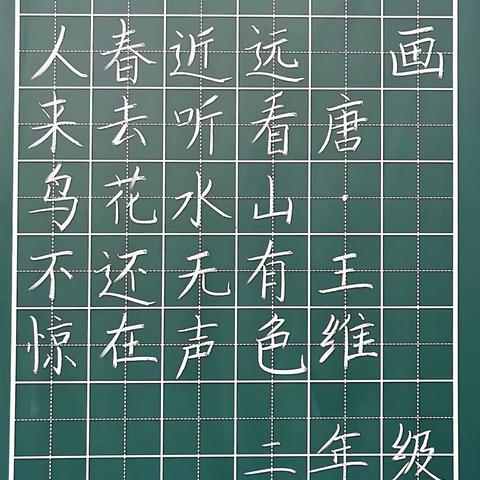 画
唐·王维
远看山有色
近听水无声
春去花还在
人来鸟不惊
二年级